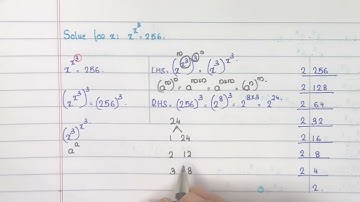 Solve for x: x^x^3 = 256.
x^x^3 = 256.
(x^x^3)^3 = (256)^3
(x^3)^x^3
a^a
LHS = (x^x^3)^3 = (x^3)^x^3.
(a^m)^n = a^m×n = a^n×m = (a^n)^m.
RHS = (256)^3 = (2^8)^3 = 2^8×3 = 2^24.
24
1 24
2 12
3 8
2 256
2 128
2 64
2 32
2 16
2 8
2 4
2